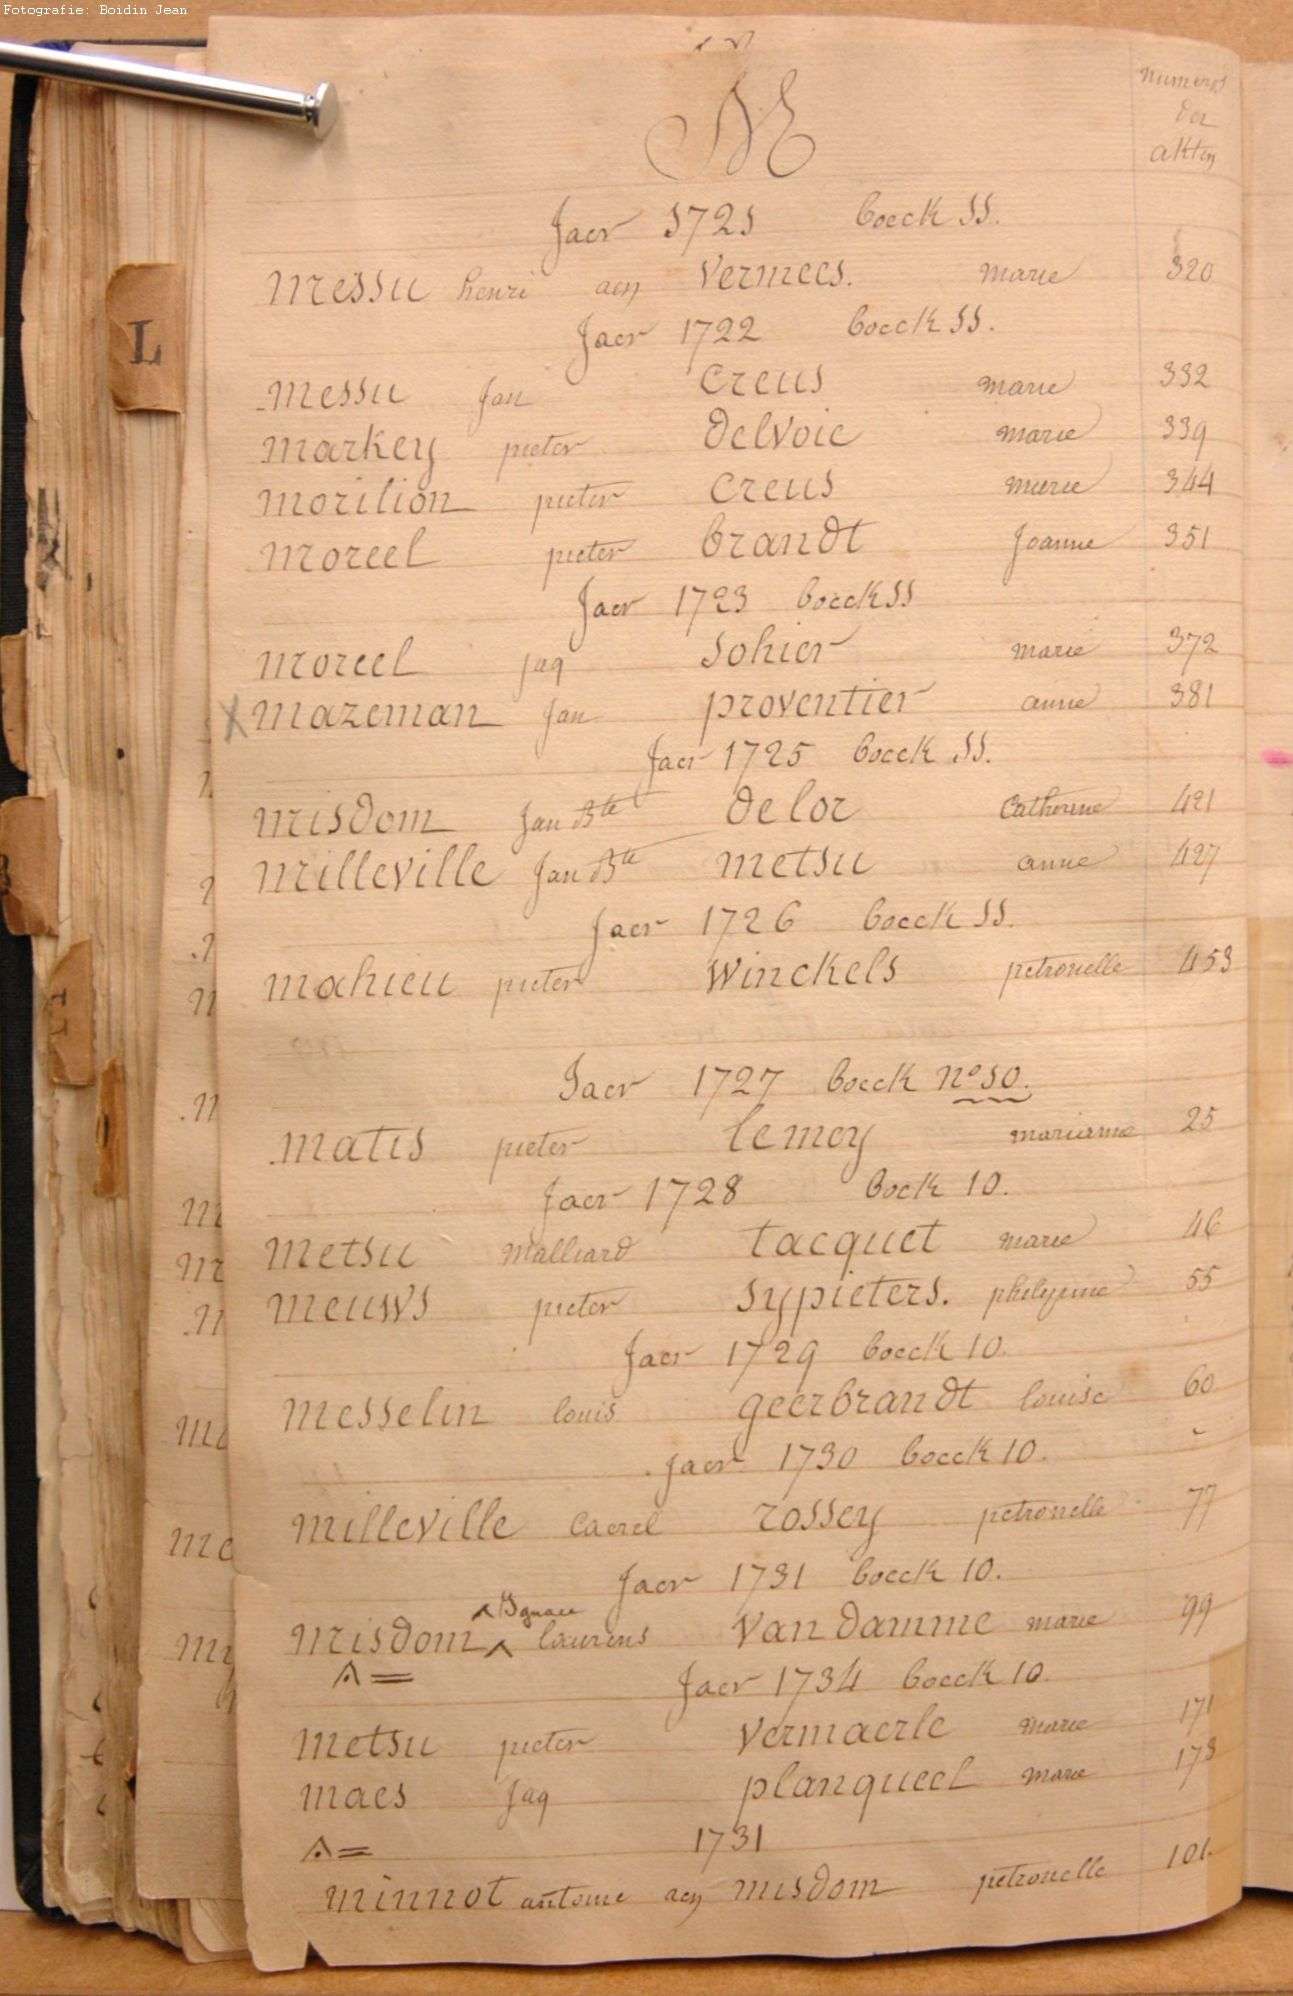 Fotografie: Boidin Jean
M
numeros
der
akten
Jaer 1721 boeck 11.
Messu henri aen Vermees. marie 320
Jaer 1722 boeck 11.
Messu Jan Creus marie 332
Markey pieter Delvoie marie 339
Morilion pieter Creus marie 344
Moreel pieter brandt Joanne 351
Jaer 1723 boeck 11
Moreel jaq Sohier marie 372
X Mazeman Jan proventier anne 381
Jaer 1725 boeck 11.
Misdom Jan Bte Delor Catherine 421
Milleville Jan Bte Metsu anne 427
Jaer 1726 boeck 11.
Mahieu pieter Winckels petronelle 453
Jaer 1727 boeck no 10.
Matis pieter lemey marianne 25
Jaer 1728 boek 10.
Metsu Malliard tacquet marie 46
Meuws pieter Sypieters. 55
Jaer 1729 boeck 10.
Messelin louis geerbrandt louise 60
Jaer 1730 boeck 10.
Milleville Caerel rossey petronelle 77
Jaer 1731 boeck 10.
Ignace
Misdom laurens Van Damme marie 99
Jaer 1734 boeck 10.
Metsu pieter Vermaerle marie 171
Maes Jaq planqueel marie 173
1731
Minnot antoine aen misdom petronelle 101.
L